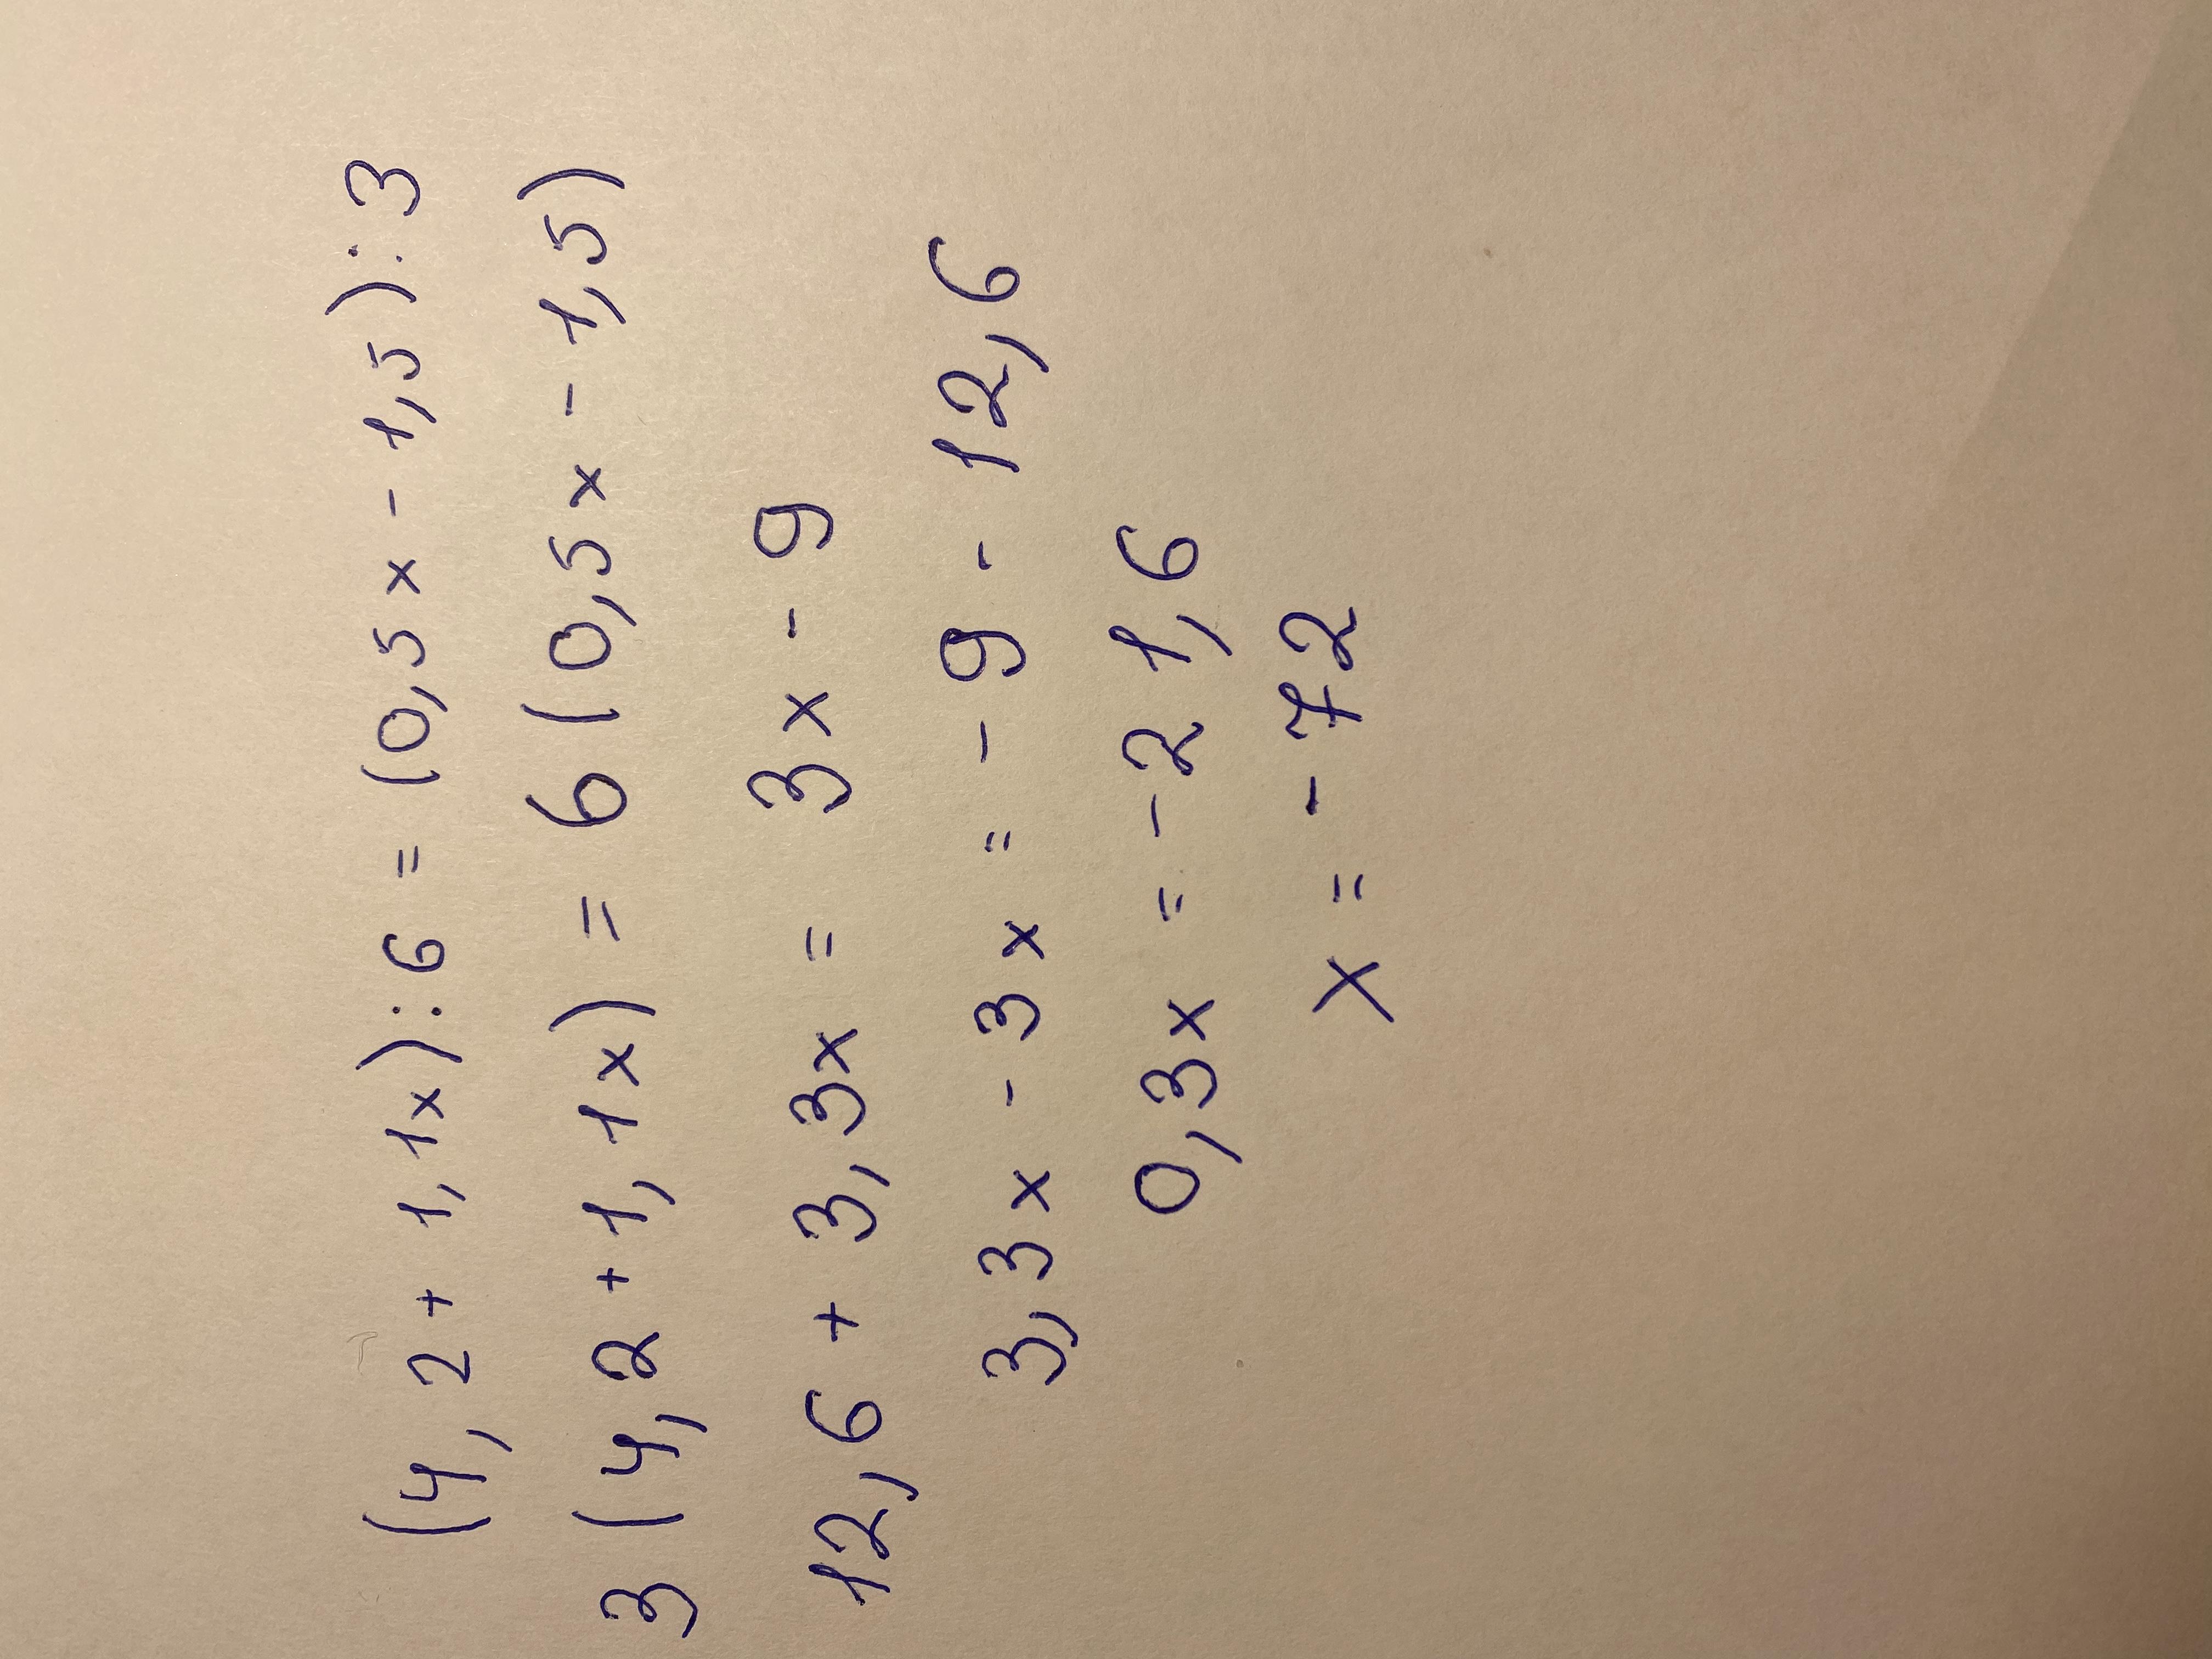 (4,2 + 1,1x) : 6 = (0,5x - 1,5) : 3
3 (4,2 + 1,1x) = 6 (0,5x - 1,5)
12,6 + 3,3x = 3x - 9
3,3x - 3x = - 9 - 12,6
0,3x = - 21,6
x = - 72